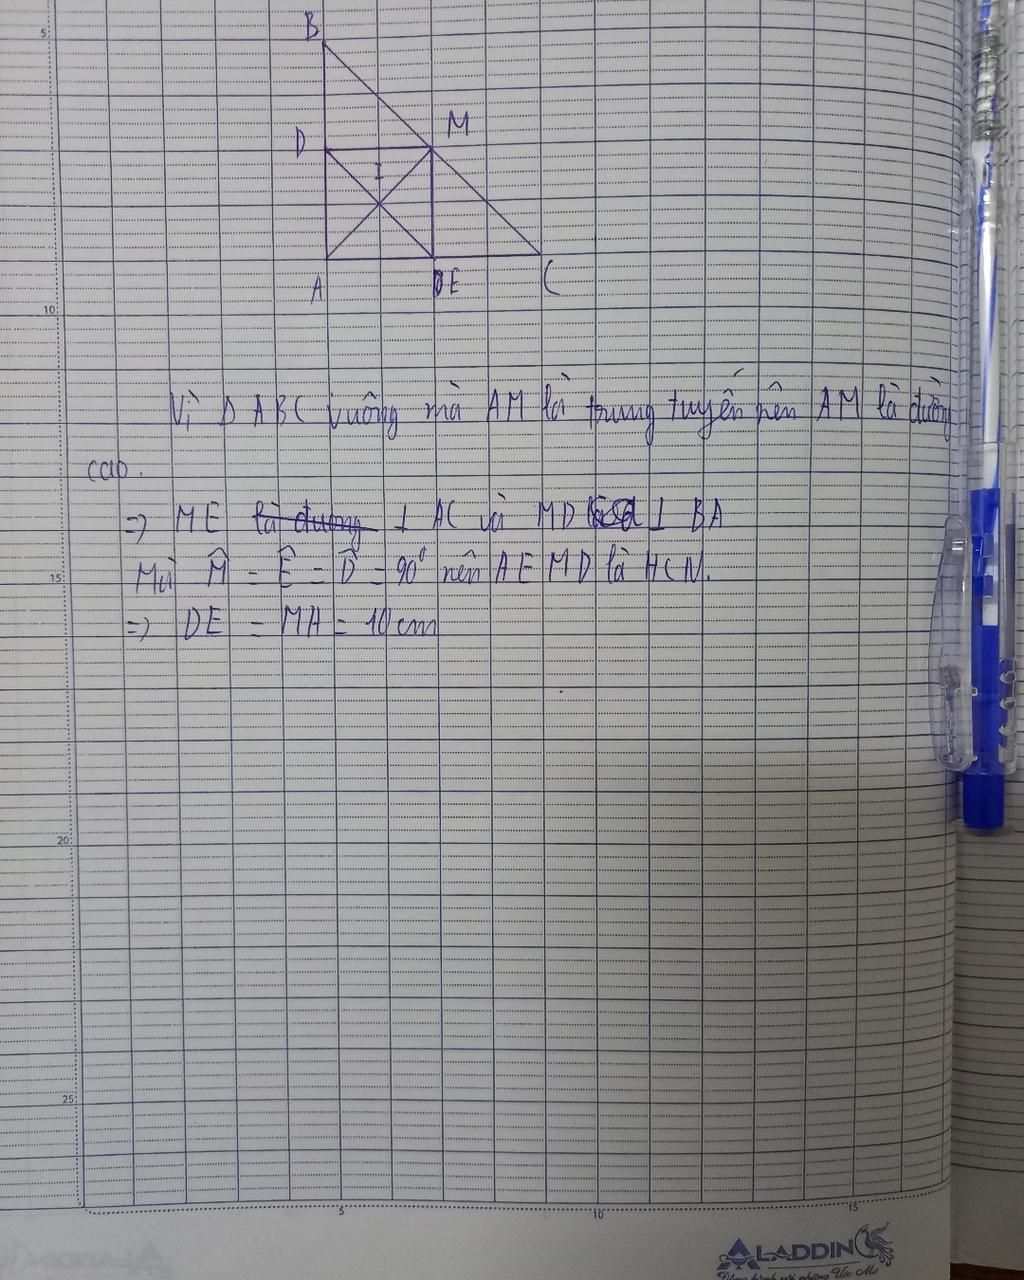 5
B
D
M
I
A
E
C
10
Vì Δ ABC vuông mà AM là trung tuyến nên AM là đường
cao.
=> ME là đường ⊥ AC và MD ⊥ BA
15
Mà M̂ = Ê = D̂ = 90° nên AEMD là HCN.
=> DE = MA = 10 cm
20
25
5
10
15
ALADDIN